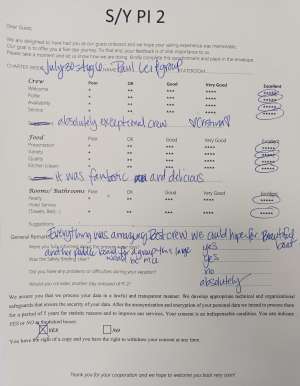 S/Y PI 2
Dear Guest,
We are delighted to have had you as our guest onboard and we hope your sailing experience was memorable.
Our goal is to offer you a fun day journey. To that end, your feedback is of vital importance to us.
Please take a moment and let us know how we are doing. Kindly complete this questionnaire and place in the envelope.
CHARTER WEEK July 30 - Aug 6 Paul Leif group
Crew Poor OK Good Very Good Excellent
Welcome * ** *** **** *****
Polite * ** *** **** *****
Availability * ** *** **** *****
Service * ** *** **** *****
absolutely exceptional crew
Food Poor OK Good Very Good Excellent
Presentation * ** *** **** *****
Variety * ** *** **** *****
Quality * ** *** **** *****
Kitchen * ** *** **** *****
it was fantastic and delicious
Rooms/ Bathrooms Poor OK Good Very Good Excellent
Neatly * ** *** **** *****
Hotel Service
(Towels, Bed...) * ** *** **** *****
General Remarks Everything was amazing. Best crew we could hope for. Beautiful boat
another public for a group this large would be nice
Were you fully informed about the yes
Was the Safety Briefing clear? yes
Did you have any problems or difficulties during your vacation? no
Would you consider another day onboard of PI 2? absolutely
We assure you that we process your data in a lawful and transparent manner. We develop appropriate technical and organizational
safeguards that ensure the security of your data. After the anonymization and encryption of your personal data we intend to process them
for a period of 5 years for statistic reasons and to improve our services. Your consent is an indispensable condition. You can indicate
YES or NO in the related boxes:
YES NO
You have the right of a copy and you have the right to withdraw your consent at any time.
Thank you for your cooperation and we hope to welcome you back very soon!